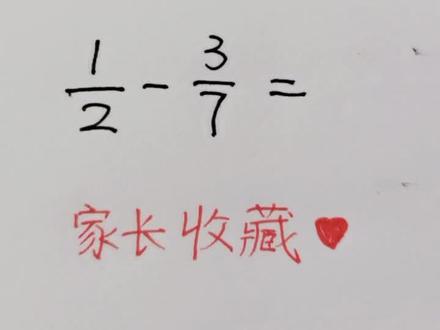 1/2 - 3/7 =
家长收藏❤